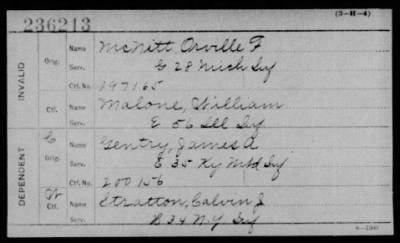 236213 (3-H-4)
INVALID
Orig. Name McNitt, Orville F
Serv. G 28 Mich Inf
Ctf. No. 197165
Ctf. Name Malone, William
Serv. E 56 Ill Inf
DEPENDENT
C Orig. Name Gentry, James A
Serv. E 35 Ky Mtd Inf
Ctf. No. 200156
W Ctf. Name Stratton, Calvin J
Serv. H 34 N.Y. Inf